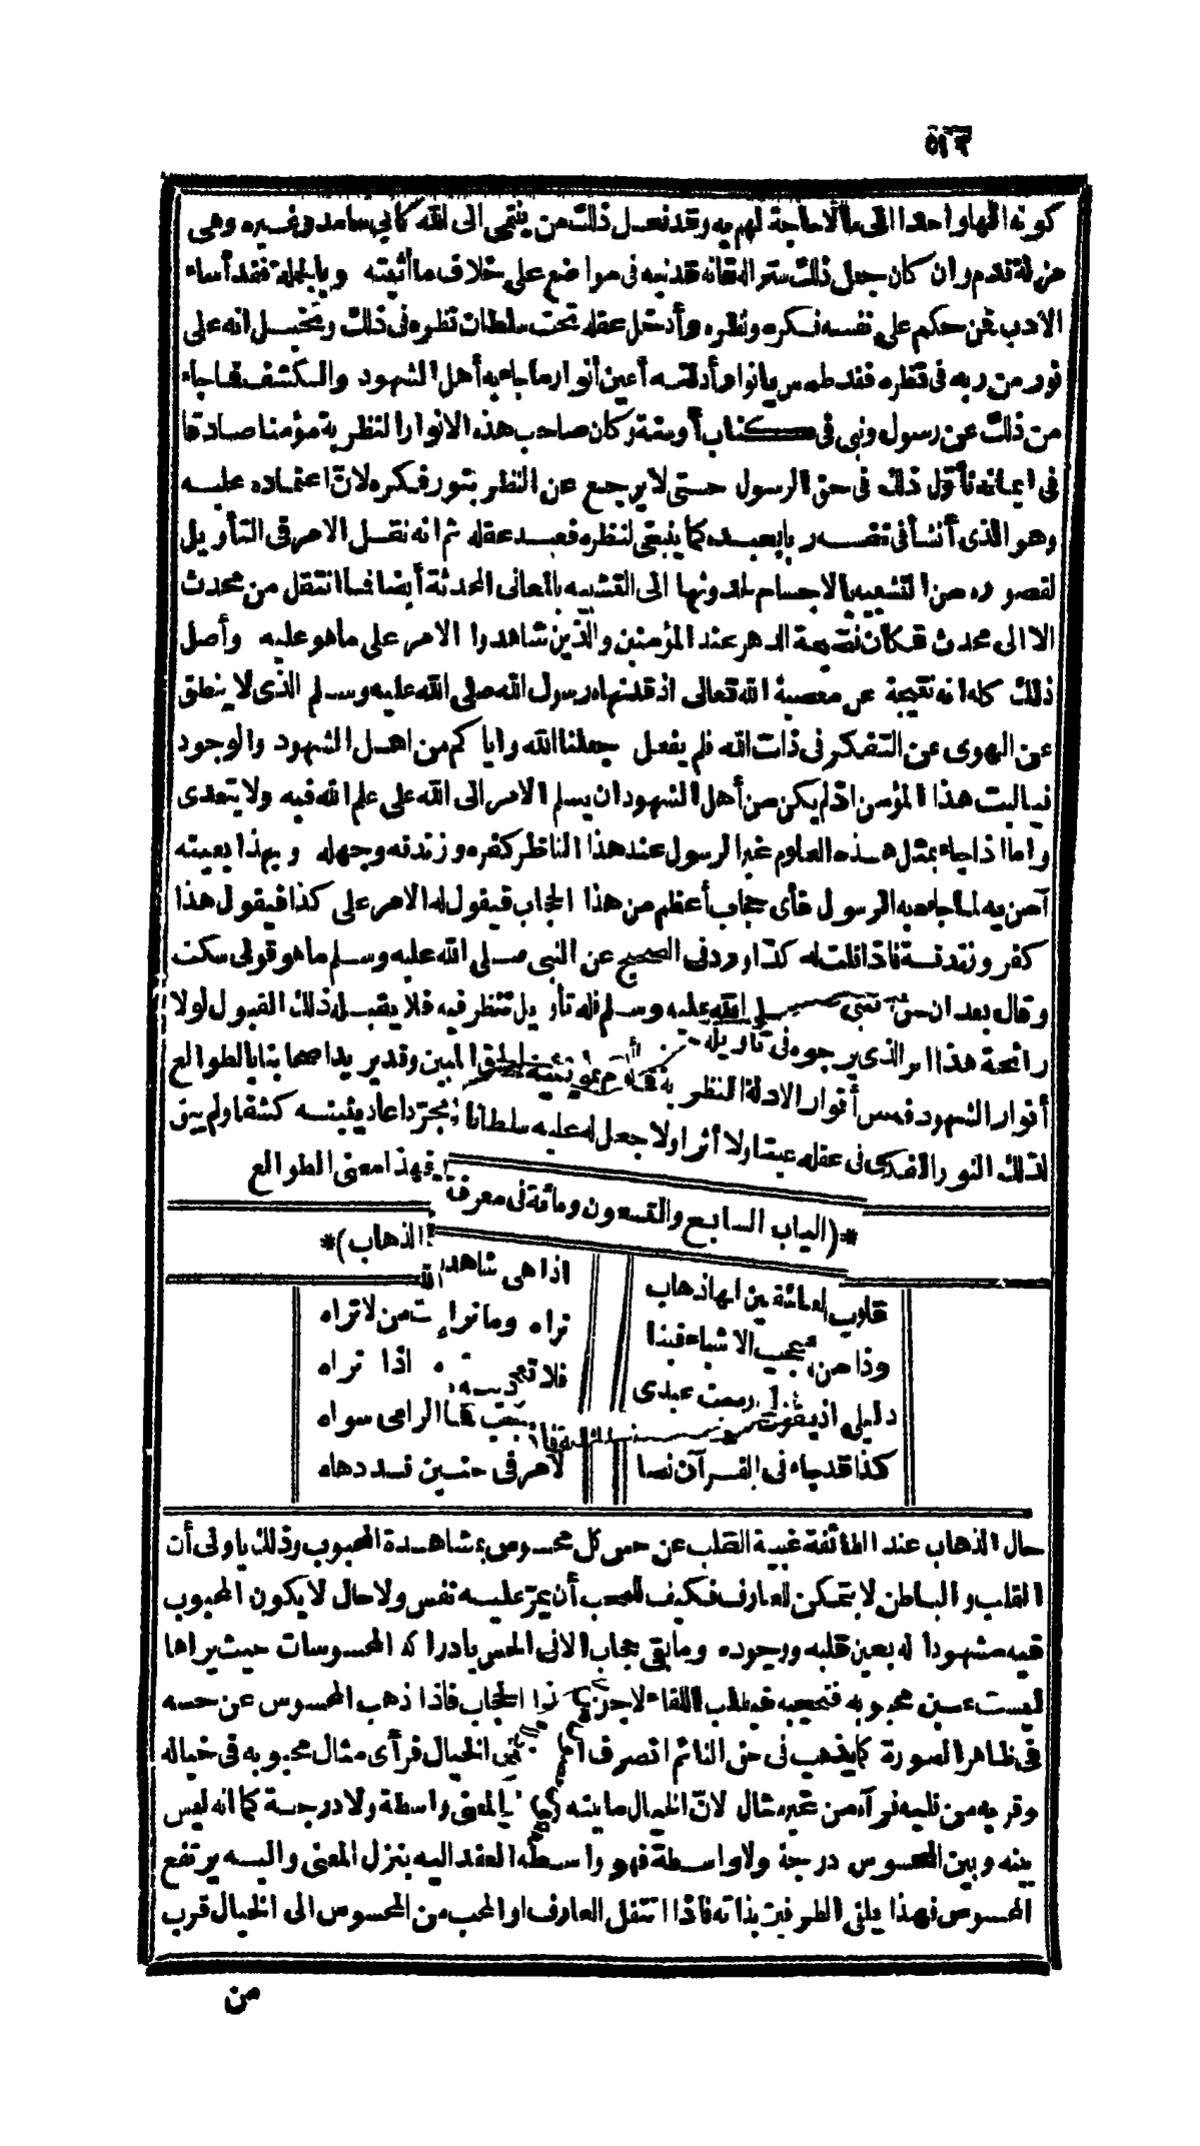 كونه الها واحدا الى ما لا حاجة لهم به وقد فعل ذلك من ينتمى الى الله كأبى حامد وغيره وهى
مزلة قدم وان كان جعل ذلك سترا له فانه قد نبه فى مواضع على خلاف ما أثبته وبالجملة فقد أساء
الادب فمن حكم على نفسه فكره ونظره وأدخل عقله تحت سلطان نظره فى ذلك وتخيل انه على
نور من ربه فى نظره فقد طمس بأنوار أدلته أعين أنوار ما جاء به أهل الشهود والكشف فما جاء
من ذلك عن رسول ونبى فى كتاب أوسنة وكان صاحب هذه الانوار النظرية مؤمنا صادقا
فى ايمانه تأول ذلك فى حق الرسول حتى لا يرجع عن النظر بنور فكره لان اعتماده عليه
وهو الذى أنشأ فى نفسه ربا يعبده كما ينبغى لنظره فعبد عقله ثم انه نقل الامر فى التأويل
لقصوره من التشبيه بالاجسام لحدوثها الى التشبيه بالمعانى المحدثة أيضا فما انتقل من محدث
الا الى محدث فكان فضيحة الدهر عند المؤمنين والذين شاهدوا الامر على ما هو عليه وأصل
ذلك كله انه نتيجة عن معصية الله تعالى اذ قد نهاه رسول الله صلى الله عليه وسلم الذى لا ينطق
عن الهوى عن التفكر فى ذات الله فلم يفعل جعلنا الله واياكم من اهل الشهود والوجود
فياليت هذا المؤمن اذ لم يكن من أهل الشهود ان يسلم الامر الى الله على علم الله فيه ولا يتعدى
واما اذا جاء بمثل هذه العلوم غير الرسول عند هذا الناظر كفره وزندقه وجهله وبهذا بعينه
آمن به لما جاء به الرسول فأى حجاب أعظم من هذا الحجاب فيقول له الامر على كذا فيقول هذا
كفر وزندقة فاذا قلت له كذا ورد فى الصحيح عن النبى صلى الله عليه وسلم ما هو قولى سكت
وقال بعد ان جاء عن النبى صلى الله عليه وسلم فله تأويل ننظر فيه فلا يقبله ذلك القبول لولا
رائحة هذا النظر الذى يرجوه فى تأويله المبين وقد يريد اصحابنا بالطوالع
طوالع أنوار الشهود فطمس أنوار الادلة النظرية
لذلك النور الفكرى فى عقله عينا ولا أثرا ولا جعل له عليه سلطانا فهذا معنى الطوالع
*(الباب السابع والتسعون ومائة فى معرفة الذهاب)*
قلوب العاشقين لها ذهاب اذا هى شاهدت من لا تراه
وذا من أعجب الاشياء فينا تراه وما تراه اذا تراه
دليلى اذ يقول رميت عبدى فلا تعجب فما الرامى سواه
كذا قد جاء فى القرآن نصا لأمر فى حنين قد دهاه
حال الذهاب عند الطائفة غيبة القلب عن حس كل محسوس بمشاهدة المحبوب وذلك يا ولى أن
القلب والباطن لا يتمكن للعارف فكيف للمحب أن يمر عليه نفس ولا حال لا يكون المحبوب
فيه مشهودا له بعين قلبه ووجوده وما بقى حجاب الا فى الحس بادراكه المحسوسات حيث يراها
ليست عين محبوبه فتحجبه فيطلب اللقاء لاجل هذا الحجاب فاذا ذهب المحسوس عن حسه
فى ظاهر الصورة كما يذهب فى حق النائم انصرف الحس الى الخيال فرأى مثال محبوبه فى خياله
وقربه من قلبه فرآه من غير مثال لان الخيال ما بينه وبين المعنى واسطة ولا درجة كما انه ليس
بينه وبين المحسوس درجة ولا واسطة فهو واسطة العقد اليه ينزل المعنى واليه يرتفع
المحسوس فهذا يلقى الطرفين بذاته فاذا انتقل العارف او المحب من المحسوس الى الخيال قرب
من